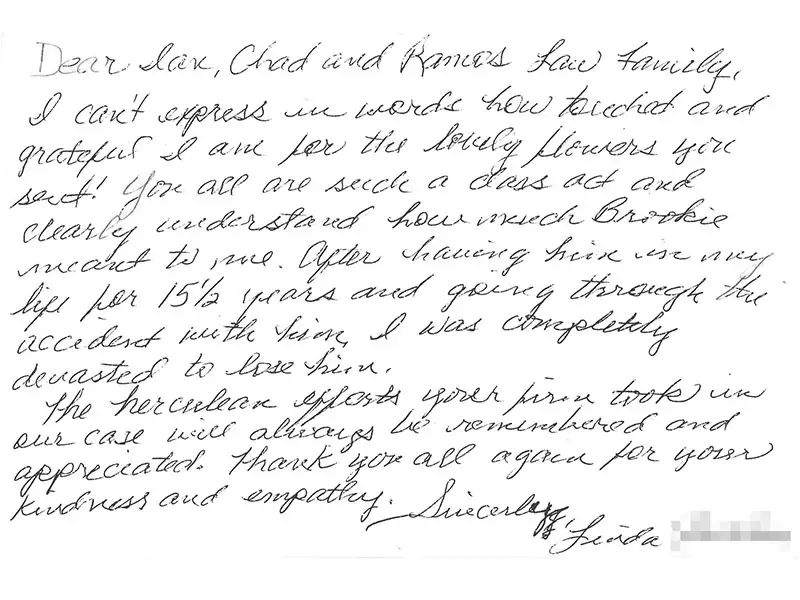 Dear Ian, Chad and Ramos Law Family,
I can't express in words how touched and
grateful I am for the lovely flowers you
sent! You all are such a class act and
clearly understand how much Brookie
meant to me. After having him in my
life for 15½ years and going through the
accident with him, I was completely
devasted to lose him.
The herculean efforts your firm took in
our case will always be remembered and
appreciated. Thank you all again for your
kindness and empathy.
Sincerely,
Linda